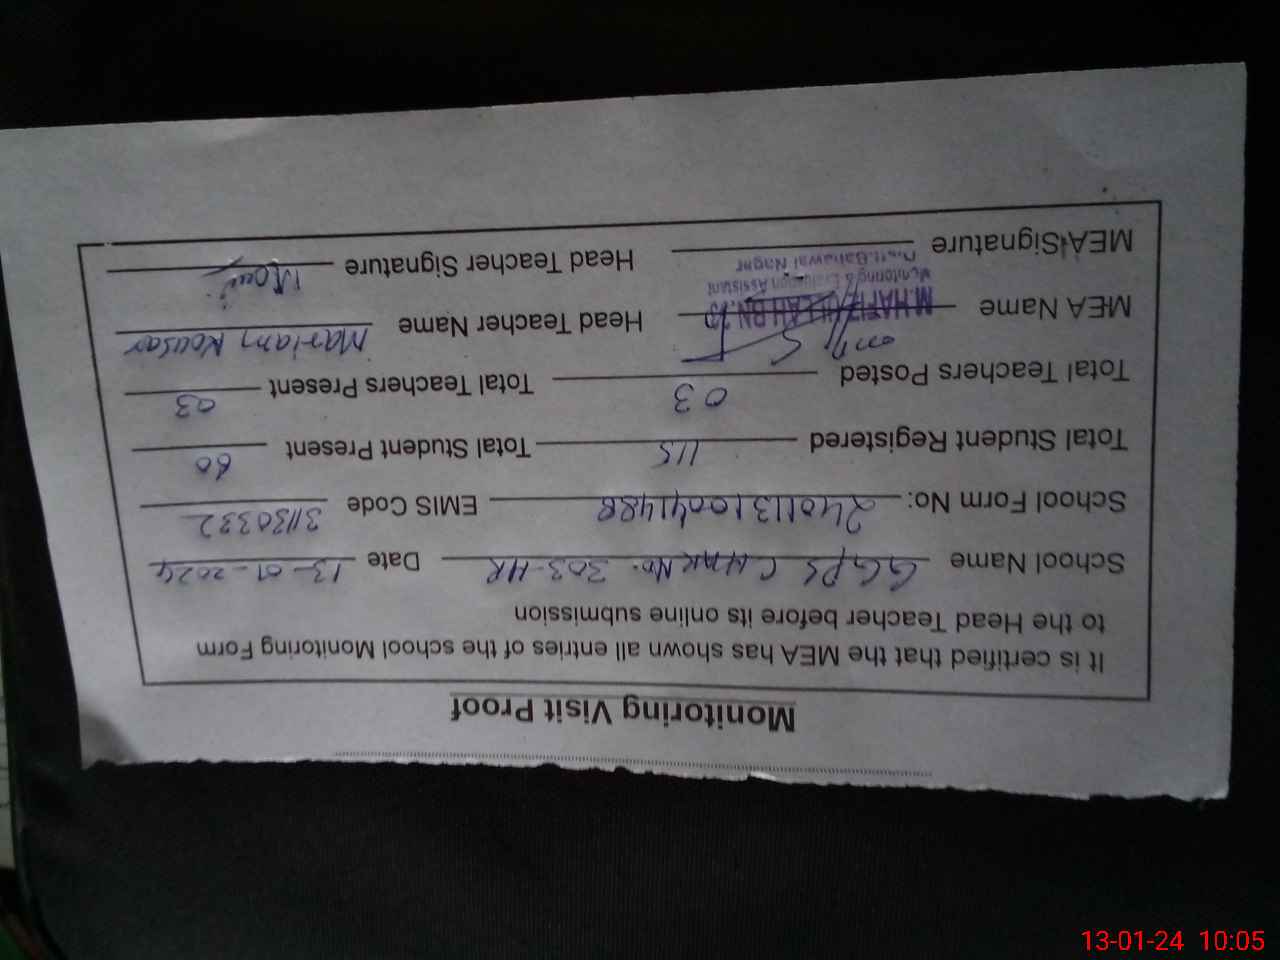 Monitoring Visit Proof
It is certified that the MEA has shown all entries of the school Monitoring Form
to the Head Teacher before its online submission
School Name GGPS CHAK No. 303-HR Date 13-01-2024
School Form No: 240113100411488 EMIS Code 31130332
Total Student Registered 115 Total Student Present 60
Total Teachers Posted 03 Total Teachers Present 03
MEA Name M.HAFIZ ULLAH BN. Head Teacher Name Mariam Kousar
Monitoring & Evaluation Assistant
Distt. Bahawal Nagar
MEA Signature Head Teacher Signature
13-01-24 10:05